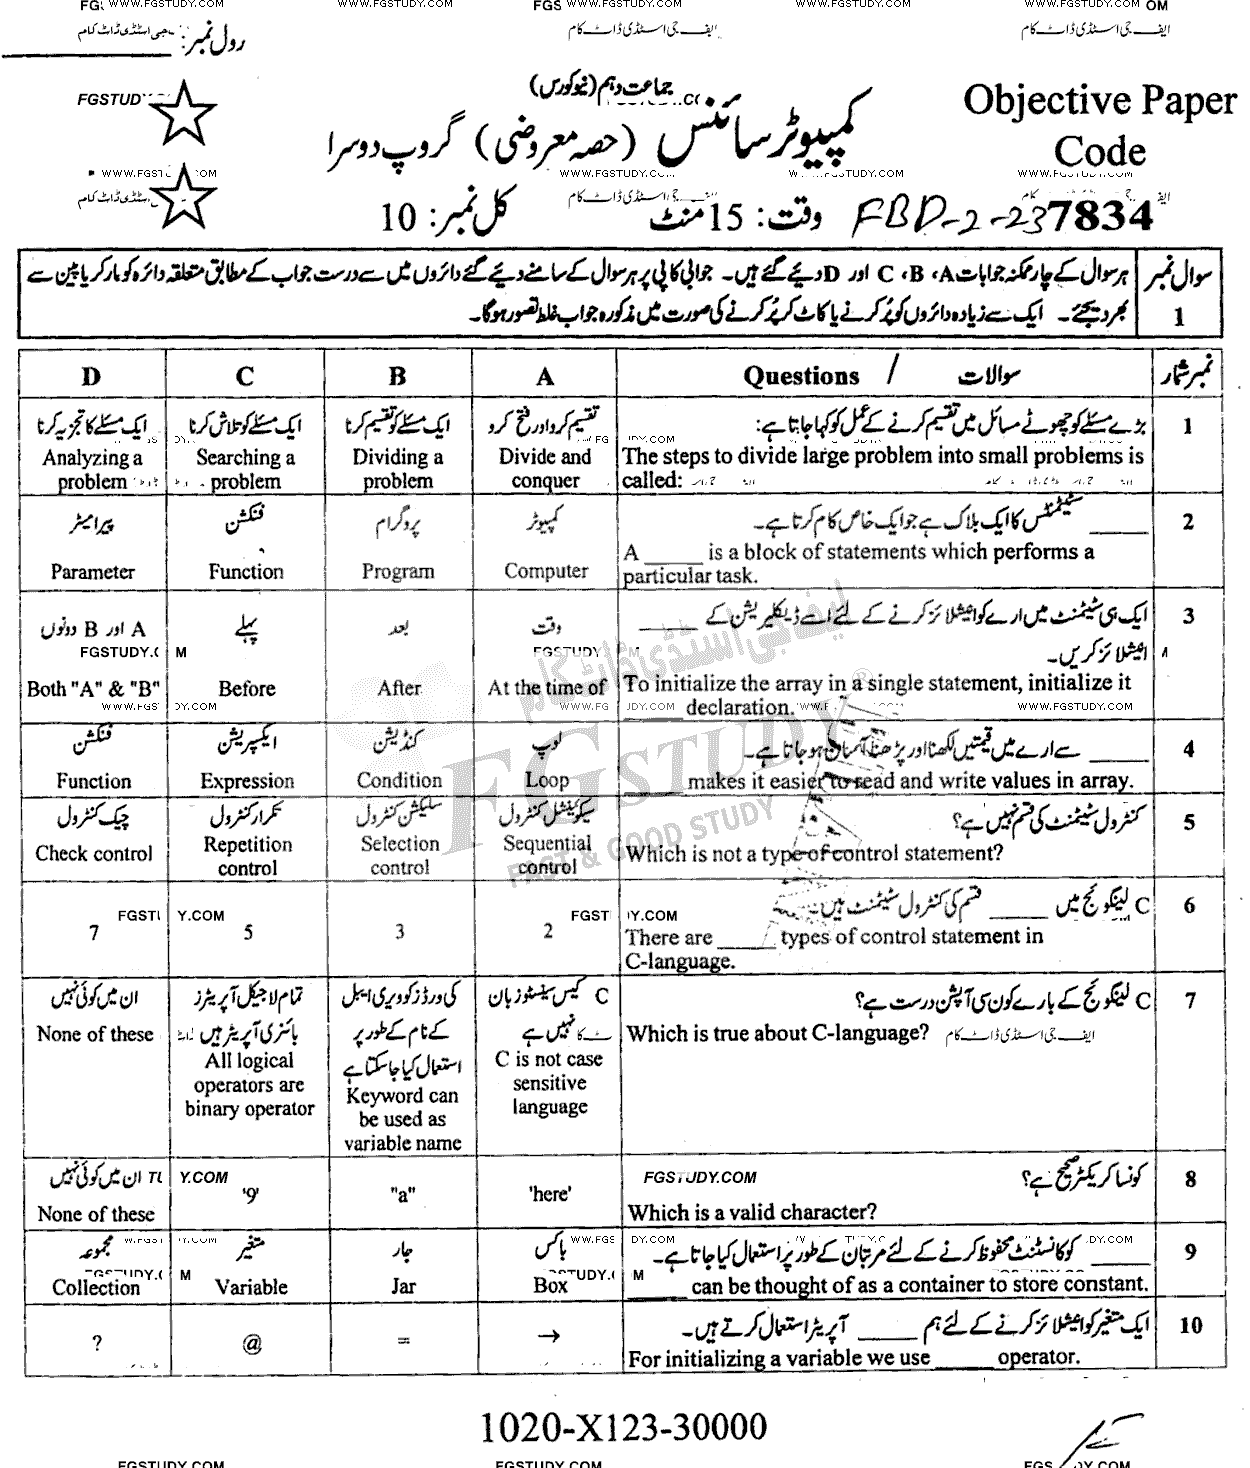 WWW.FGSTUDY.COM WWW.FGSTUDY.COM WWW.FGSTUDY.COM
ایف جی اسٹڈی ڈاٹ کام
رول نمبر:
جماعت دہم (نیو کورس)
Objective Paper
Code
کمپیوٹر سائنس (حصہ معروضی) گروپ دوسرا
وقت: 15 منٹ کل نمبر: 10
FBD-2-23 7834
سوال نمبر 1
ہر سوال کے چار ممکنہ جوابات A، B، C اور D دیئے گئے ہیں۔ جوابی کاپی پر ہر سوال کے سامنے دیئے گئے دائروں میں سے درست جواب کے مطابق متعلقہ دائرہ کو مارکر یا پین سے
بھر دیجئے۔ ایک سے زیادہ دائروں کو پُر کرنے یا کاٹ کر پُر کرنے کی صورت میں مذکورہ جواب غلط تصور ہوگا۔
نمبر شمار سوالات / Questions A B C D
1 بڑے مسئلے کو چھوٹے مسائل میں تقسیم کرنے کے عمل کو کہا جاتا ہے:
The steps to divide large problem into small problems is
called:
تقسیم کرو اور فتح کرو
Divide and
conquer
ایک مسئلے کو تقسیم کرنا
Dividing a
problem
ایک مسئلے کو تلاش کرنا
Searching a
problem
ایک مسئلے کا تجزیہ کرنا
Analyzing a
problem
2 _____ سٹیٹمنٹس کا ایک بلاک ہے جو ایک خاص کام کرتا ہے۔
A _____ is a block of statements which performs a
particular task.
کمپیوٹر
Computer
پروگرام
Program
فنکشن
Function
پیرامیٹر
Parameter
3 ایک ہی سٹیٹمنٹ میں ارے کو انیشلائز کرنے کے لئے اسے ڈیکلیریشن کے _____
انیشلائز کریں۔
To initialize the array in a single statement, initialize it
_____ declaration.
وقت
At the time of
بعد
After
پہلے
Before
A اور B دونوں
Both "A" & "B"
4 _____ سے ارے میں قیمتیں لکھنا اور پڑھنا آسان ہو جاتا ہے۔
_____ makes it easier to read and write values in array.
لوپ
Loop
کنڈیشن
Condition
ایکسپریشن
Expression
فنکشن
Function
5 کنٹرول سٹیٹمنٹ کی قسم نہیں ہے؟
Which is not a type of control statement?
سیکوئینشل کنٹرول
Sequential
control
سلیکشن کنٹرول
Selection
control
تکرار کنٹرول
Repetition
control
چیک کنٹرول
Check control
6 C لینگوئج میں _____ قسم کی کنٹرول سٹیٹمنٹ ہیں۔
There are _____ types of control statement in
C-language.
2
3
5
7
7 C لینگوئج کے بارے کون سی آپشن درست ہے؟
Which is true about C-language?
C کیس سینسٹو زبان
نہیں ہے
C is not case
sensitive
language
کی ورڈز کو ویری ایبل
کے نام کے طور پر
استعمال کیا جا سکتا ہے
Keyword can
be used as
variable name
تمام لاجیکل آپریٹرز
بائنری آپریٹر ہیں
All logical
operators are
binary operator
ان میں کوئی نہیں
None of these
8 کونسا کریکٹر صحیح ہے؟
Which is a valid character?
'here'
"a"
'9'
ان میں کوئی نہیں
None of these
9 _____ کو کانسٹنٹ محفوظ کرنے کے لئے مرتبان کے طور پر استعمال کیا جاتا ہے۔
_____ can be thought of as a container to store constant.
باکس
Box
جار
Jar
متغیر
Variable
مجموعہ
Collection
10 ایک متغیر کو انیشلائز کرنے کے لئے ہم _____ آپریٹر استعمال کرتے ہیں۔
For initializing a variable we use _____ operator.
→
=
@
?
ایف جی اسٹڈی ڈاٹ کام
FG STUDY
FAST & GOOD STUDY
1020-X123-30000
FGSTUDY.COM FGSTUDY.COM FGSTUDY.COM